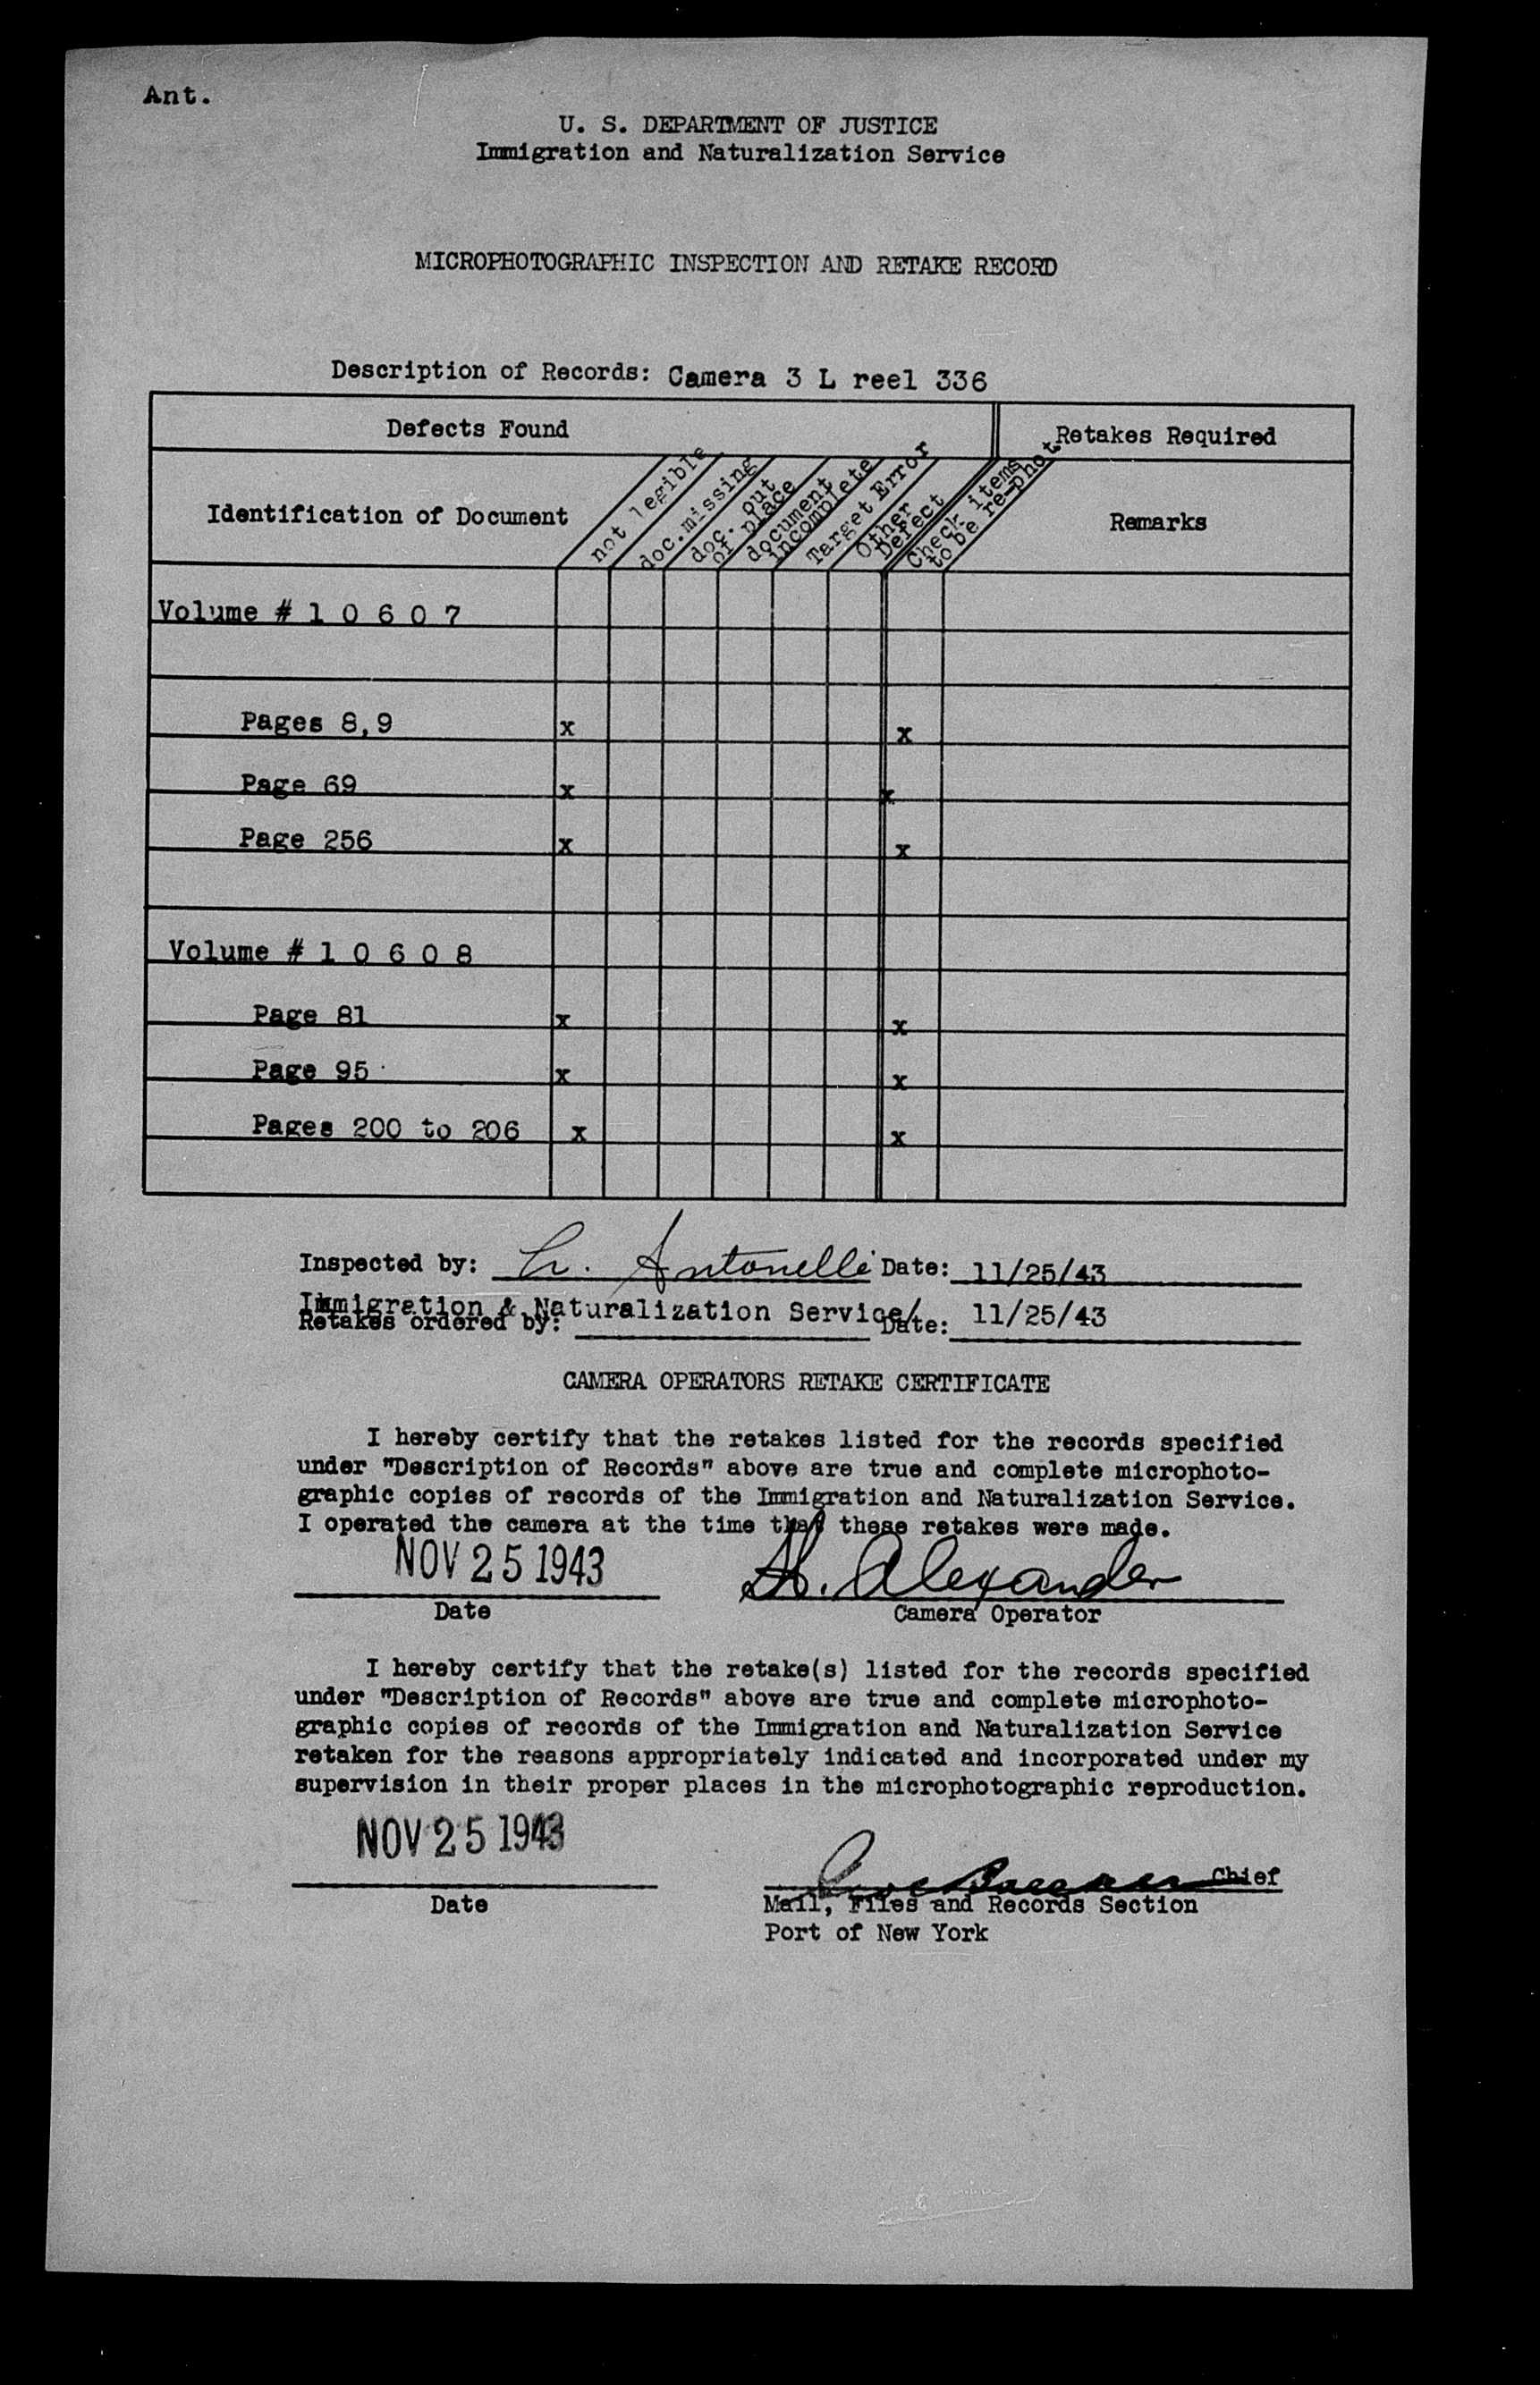 Ant.
U. S. DEPARTMENT OF JUSTICE
Immigration and Naturalization Service
MICROPHOTOGRAPHIC INSPECTION AND RETAKE RECORD
Description of Records: Camera 3 L reel 336
Defects Found
Retakes Required
Identification of Document
not legible
doc.missing
doc. out
of place
document
incomplete
Target Error
Other
Defect
Check items
to be re-phot.
Remarks
Volume # 1 0 6 0 7
Pages 8,9 x x
Page 69 x x
Page 256 x x
Volume # 1 0 6 0 8
Page 81 x x
Page 95 x x
Pages 200 to 206 x x
Inspected by: Antonelli Date: 11/25/43
Immigration & Naturalization Service/
Retakes ordered by: Date: 11/25/43
CAMERA OPERATORS RETAKE CERTIFICATE
I hereby certify that the retakes listed for the records specified
under "Description of Records" above are true and complete microphoto-
graphic copies of records of the Immigration and Naturalization Service.
I operated the camera at the time that these retakes were made.
NOV 25 1943 H. Alexander
Date Camera Operator
I hereby certify that the retake(s) listed for the records specified
under "Description of Records" above are true and complete microphoto-
graphic copies of records of the Immigration and Naturalization Service
retaken for the reasons appropriately indicated and incorporated under my
supervision in their proper places in the microphotographic reproduction.
NOV 25 1943
Chief
Date Mail, Files and Records Section
Port of New York